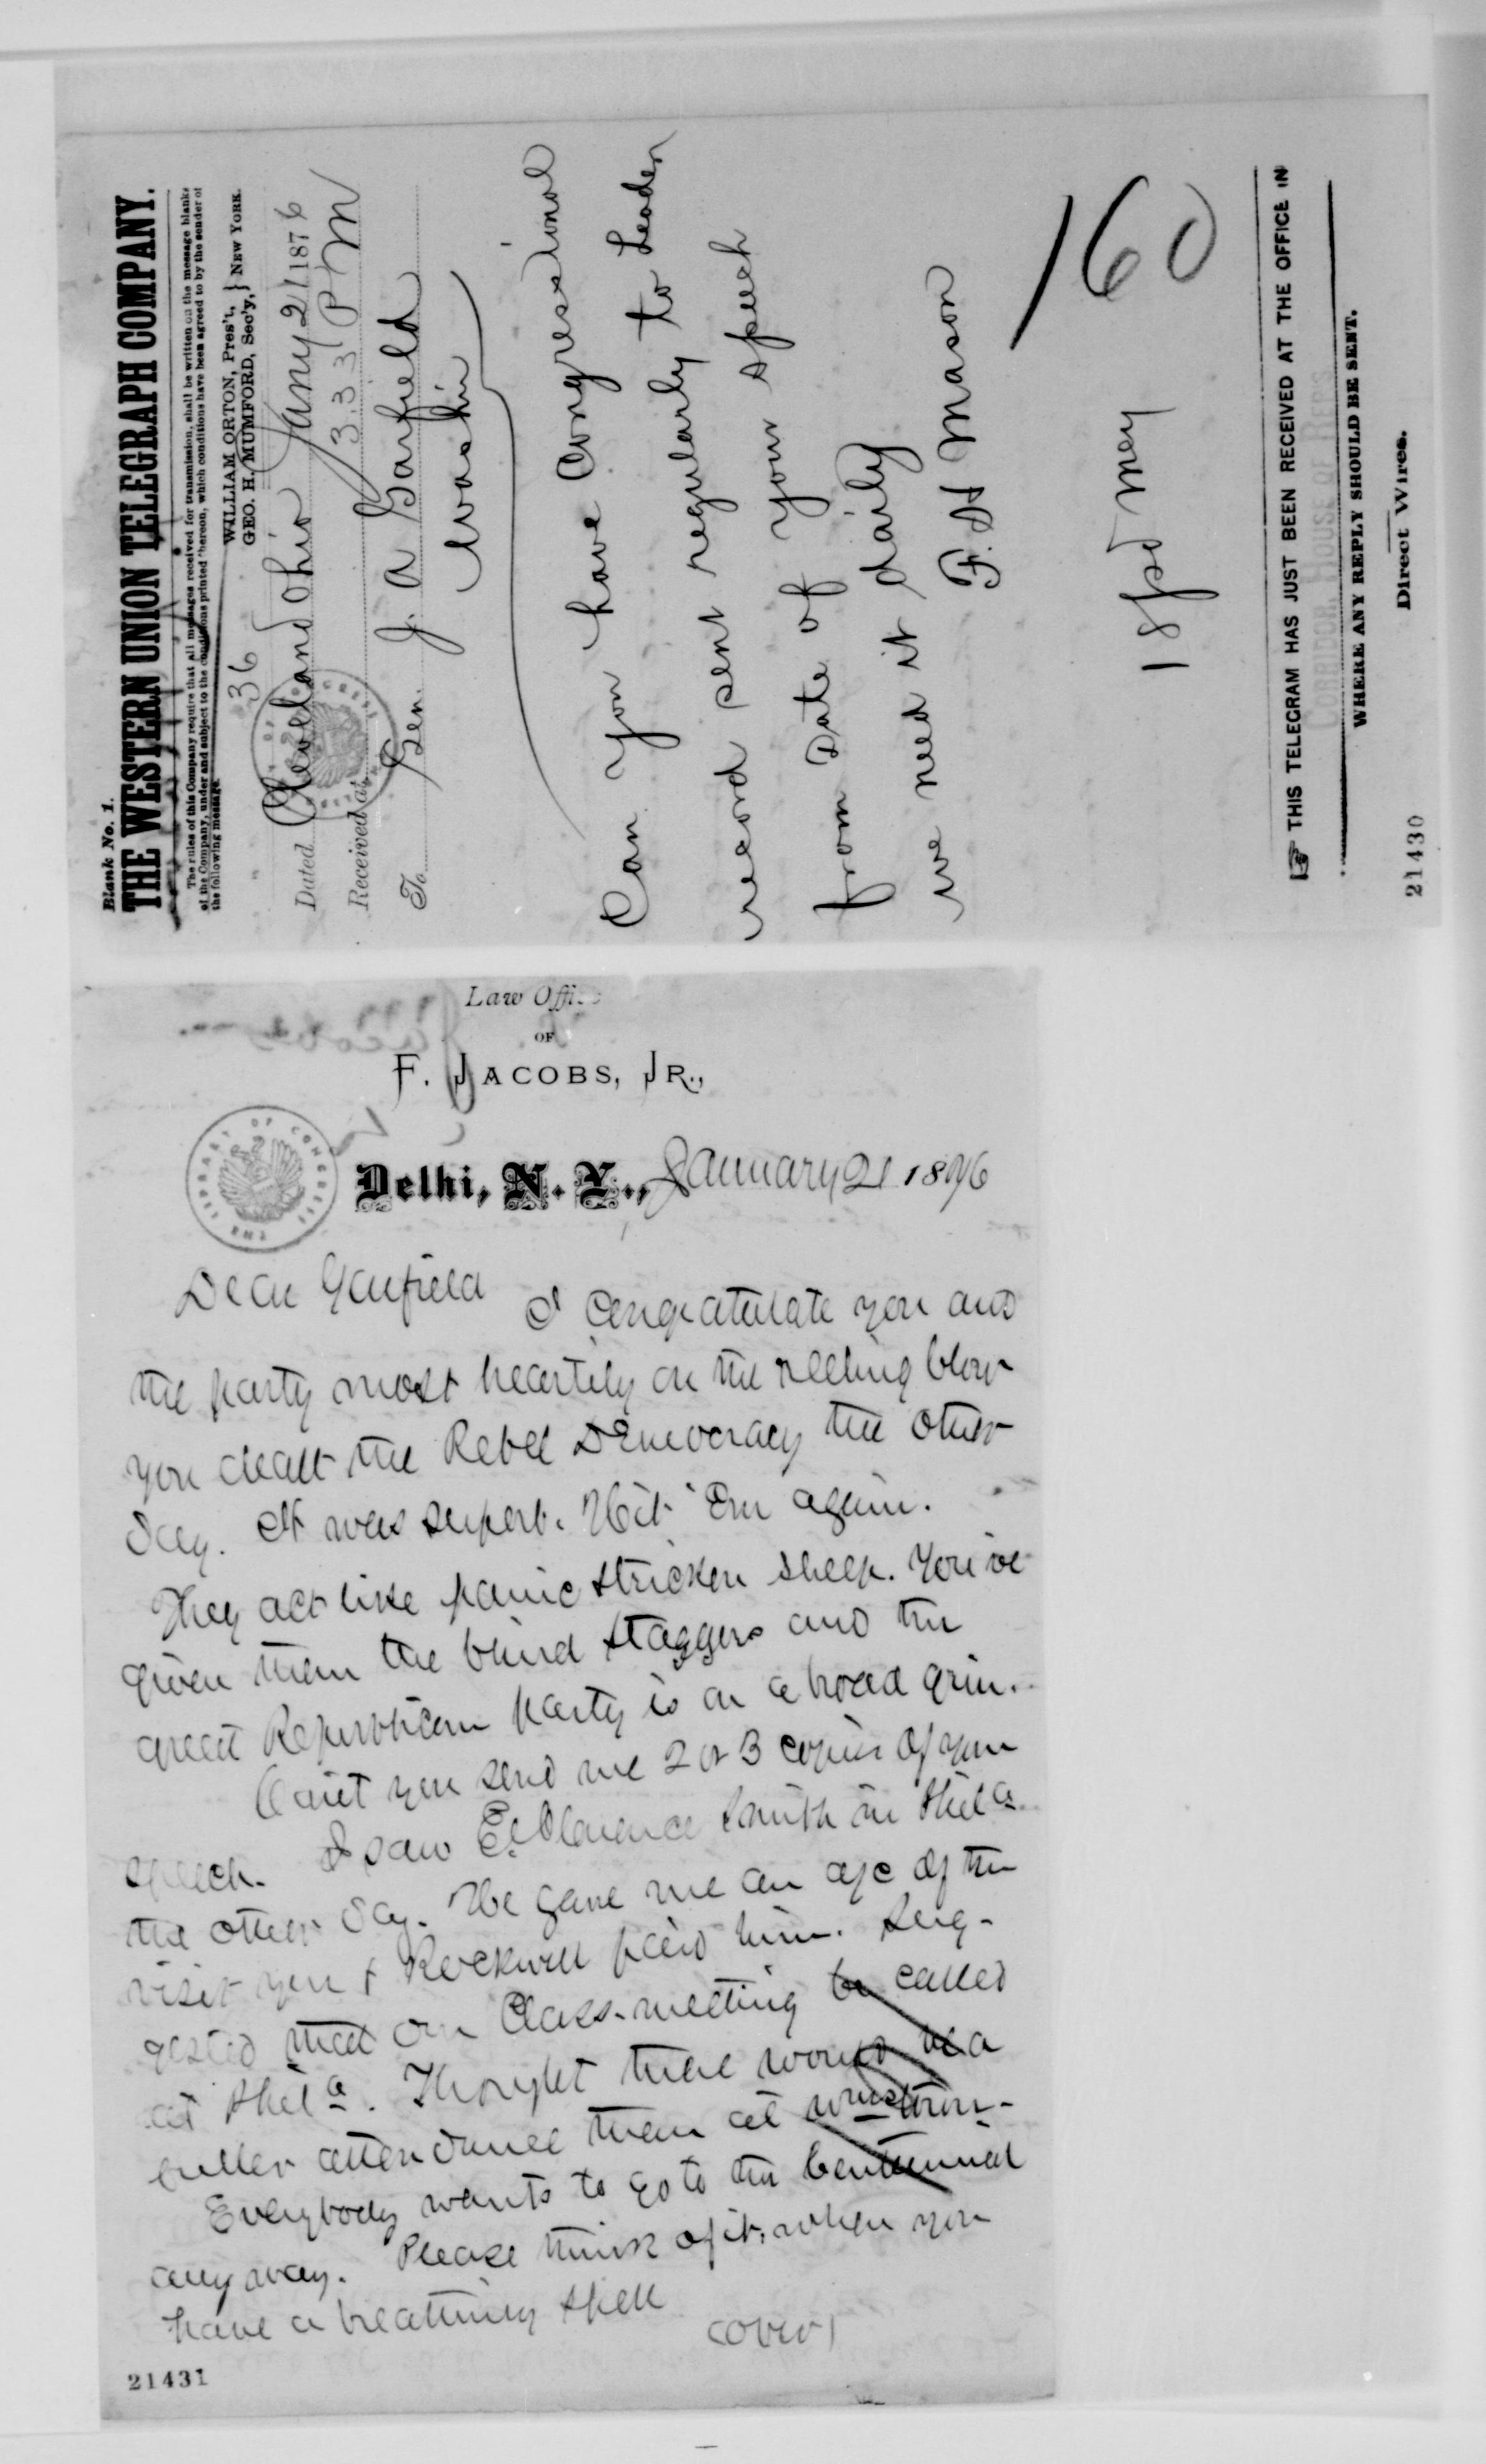 Blank No. 1.
THE WESTERN UNION TELEGRAPH COMPANY.
The rules of this Company require that all messages received for transmission, shall be written on the message blanks
of the Company, under and subject to the conditions printed thereon, which conditions have been agreed to by the sender of
the following message.
WILLIAM ORTON, Pres't, } NEW YORK.
GEO. H. MUMFORD, Sec'y,
36
Dated Cleveland Ohio Jany 21 1876
Received at 3.33 PM
To Gen. J. A Garfield
Washn
Can you have Congressional
record sent regularly to Leader
from Date of your speech
we need it daily
F. H Mason
18 pd
160
THIS TELEGRAM HAS JUST BEEN RECEIVED AT THE OFFICE IN
CORRIDOR, HOUSE OF REPS
WHERE ANY REPLY SHOULD BE SENT.
Direct Wires.
21430
Law Office
OF
F. JACOBS, JR.,
THE LIBRARY OF CONGRESS
Delhi, N. Y., January 21 1876
Dear Garfield I congratulate you and
the party most heartily on the reeling blow
you dealt the Rebel Democracy the other
day. It was superb. Hit 'Em again.
They act like panic stricken sheep. You've
given them the blind staggers and the
great Republican party is on a broad grin.
Can't you send me 2 or 3 copies of your
speech. I saw E. Clarence Smith in Phila
the other day. He gave me an a/c of the
visit you & Rockwell paid him. Sug-
gested that our Class-meeting be called
at Phila. Thought there would be a
fuller attendance then at
Everybody wants to go to the Centennial
any way. Please think of it, when you
have a breathing spell
(over)
21431